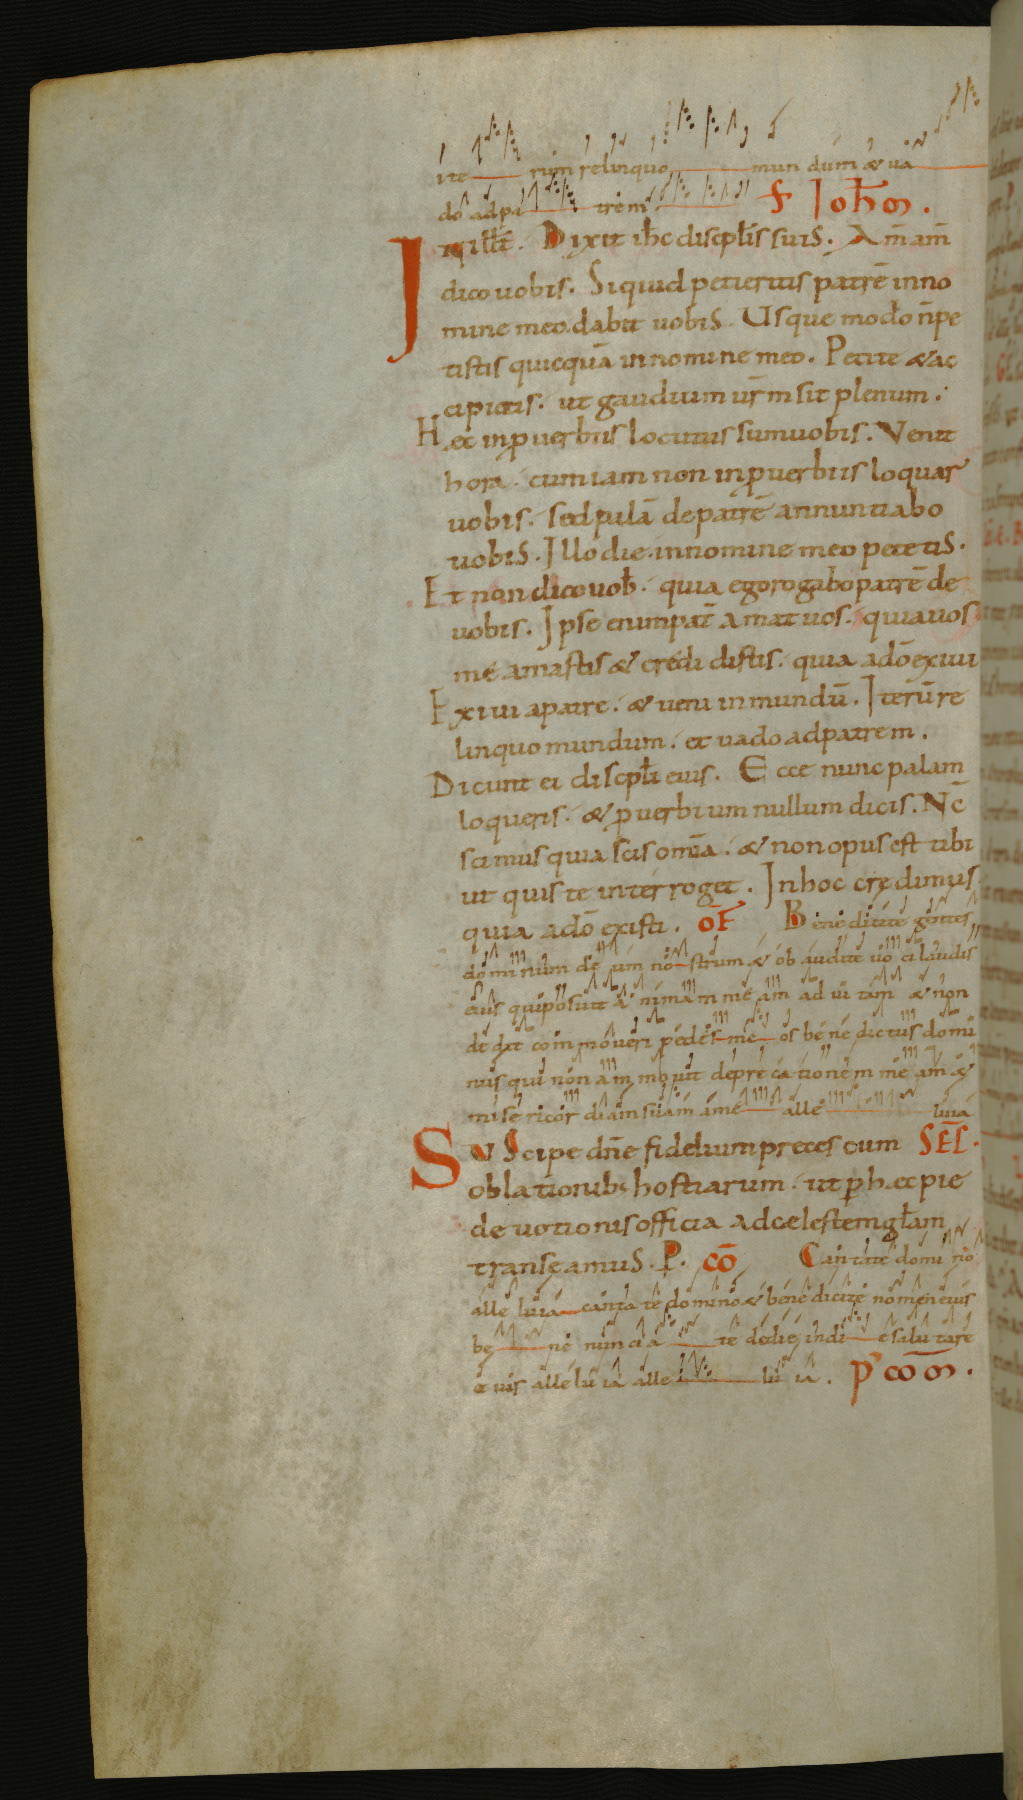 ite rum relinquo mundum & ua
do ad pa trem S Ioh̄m.
In illt̄. Dixit ih̄c discpl̄is suis. Am̄ am̄
dico uobis. Siquid petieritis patrē inno
mine meo dabit uobis. Usque modo n̄ pe
tistis quicquā in nomine meo. Petite & ac
cipietis. ut gaudium ur̄m sit plenum.
Hec in ꝓuerbiis locutus sum uobis. Venit
hora. cum iam non in ꝓuerbiis loquar
uobis. sed palā de patre annuntiabo
uobis. Illo die in nomine meo petetis.
Et non dico uob̄. quia ego rogabo patrē de
uobis. Ipse enim pat̄ amat uos. quia uos
me amastis & credidistis. quia a dō exiui
Exiui a patre. & ueni in mundū. Iterū re
linquo mundum. et uado ad patrem.
Dicunt ei discpl̄i eius. Ecce nunc palam
loqueris. & ꝓuerbium nullum dicis. Nc̄
scimus quia scis omīa. & non opus est tibi
ut quis te interroget. In hoc credimus
quia a dō existi. OF Benedicite gentes
dominum deum nostrum & obaudite uoci laudis
eius qui posuit animam meam ad uitam & non
dedit commoueri pedes meos benedictus domi
nus qui non amouit deprecationem meam &
misericordiam suam ame alle luia
Suscipe dn̄e fidelium preces cum SEC.
oblationib; hostiarum. ut ꝑ hec pie
deuotionis officia ad celestem gl̄am
transeamus. P. CŌ Cantate domino
alleluia cantate domino & benedicite nomen eius
bene nunciate de die in die salutare
eius alleluia alle luia. P' COM.